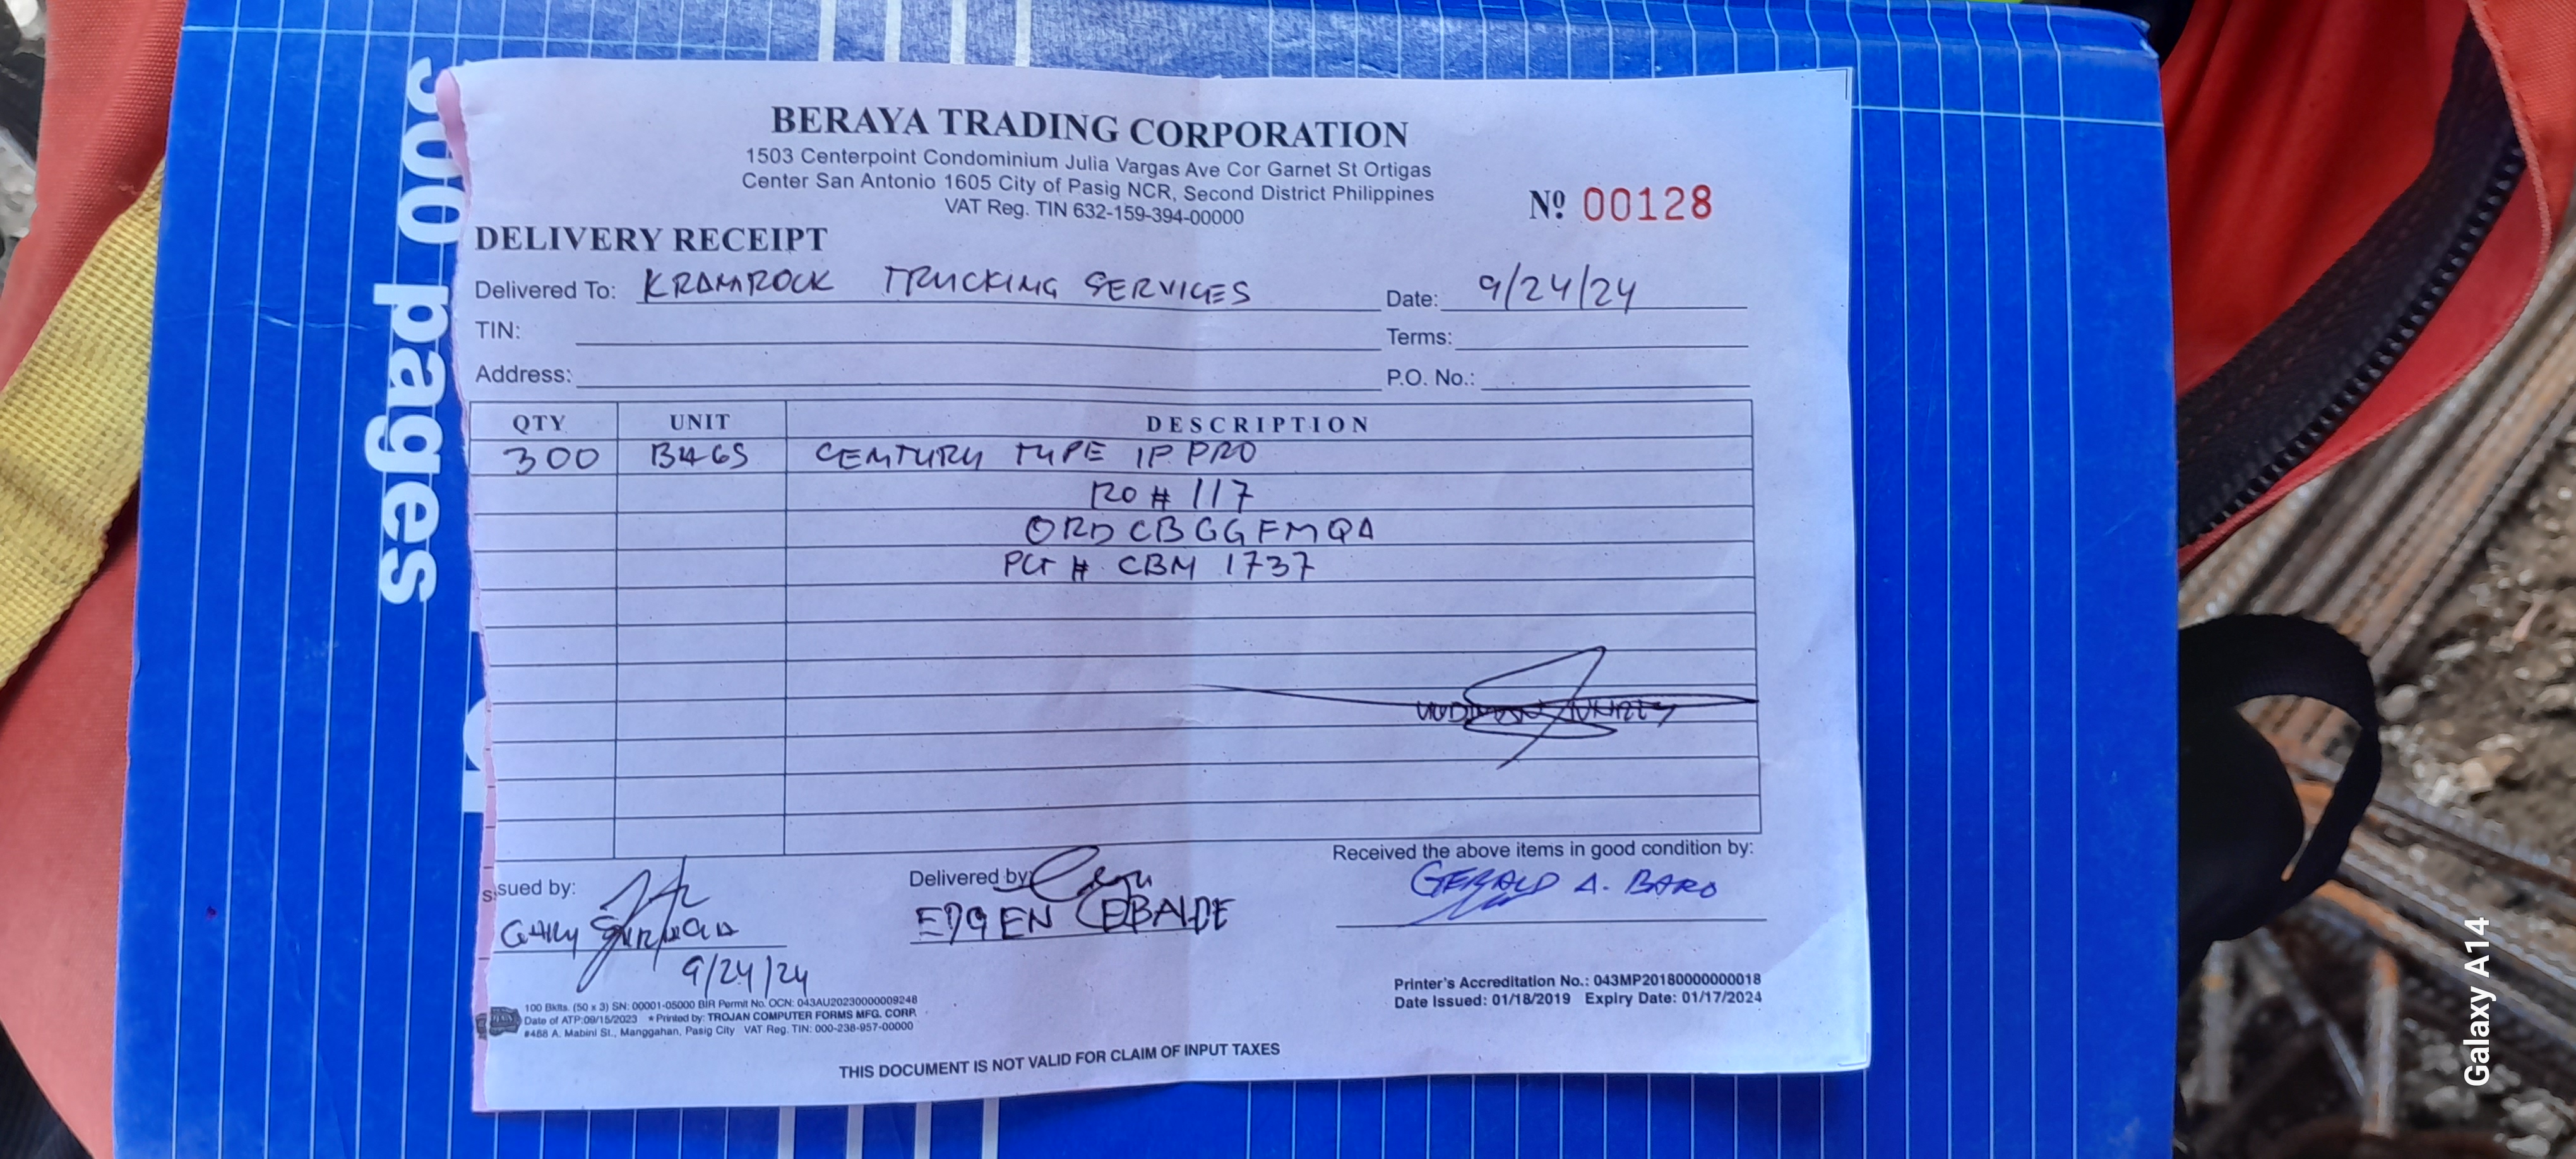 500 pages
BERAYA TRADING CORPORATION
1503 Centerpoint Condominium Julia Vargas Ave Cor Garnet St Ortigas
Center San Antonio 1605 City of Pasig NCR, Second District Philippines
VAT Reg. TIN 632-159-394-00000
Nº 00128
DELIVERY RECEIPT
Delivered To: KRAMROCK TRUCKING SERVICES Date: 9/24/24
TIN: Terms:
Address: P.O. No.:
QTY UNIT DESCRIPTION
300 BAGS CENTURY TYPE 1P PRO
RO # 117
ORDCBGGFMQA
PLT # CBM 1737
Received the above items in good condition by:
sued by: Delivered by:
GERALD A. BARO
GARY
EDGEN CEBALDE
9/24/24
Printer's Accreditation No.: 043MP20180000000018
Date Issued: 01/18/2019 Expiry Date: 01/17/2024
100 Bklts. (50 x 3) SN: 00001-05000 BIR Permit No. OCN: 043AU20230000009248
Date of ATP:09/15/2023 * Printed by: TROJAN COMPUTER FORMS MFG. CORP.
#488 A. Mabini St., Manggahan, Pasig City VAT Reg. TIN: 000-238-957-00000
THIS DOCUMENT IS NOT VALID FOR CLAIM OF INPUT TAXES
Galaxy A14